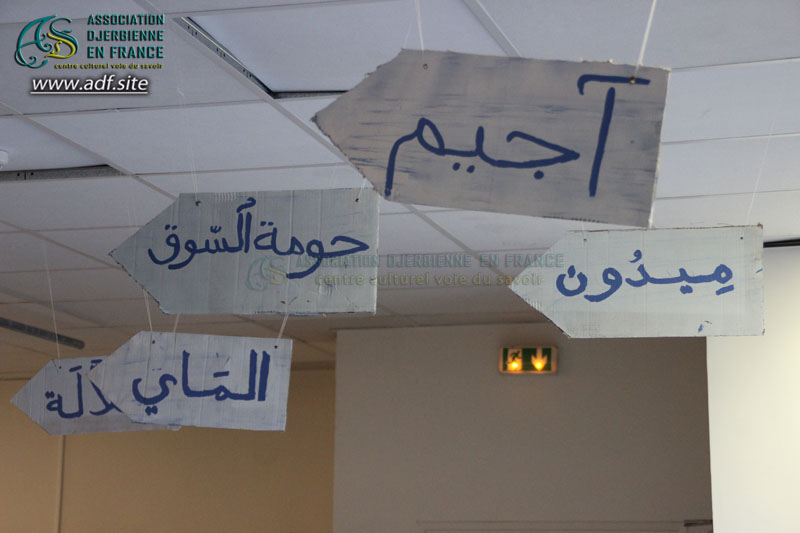 ASSOCIATION
DJERBIENNE
EN FRANCE
centre culturel voie du savoir
www.adf.site
آجيم
حومة السّوق
ASSOCIATION DJERBIENNE EN FRANCE
centre culturel voie du savoir
مِيدُون
المَاي